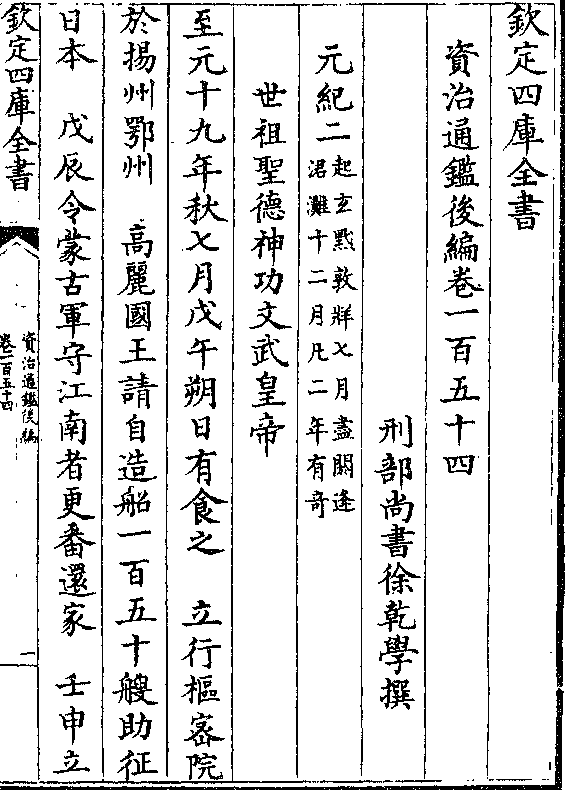 欽定四庫全書
資治通鑑後編卷一百五十四
刑部尚書徐乾學撰
元紀二
起玄黓敦牂七月盡閼逢
涒灘十二月凡二年有奇
世祖聖德神功文武皇帝
至元十九年秋七月戊午朔日有食之　立行樞密院
於揚州鄂州　高麗國王請自造船一百五十艘助征
日本　戊辰令蒙古軍守江南者更番還家　壬申立
欽定四庫全書
資治通鑑後編
卷一百五十四
一